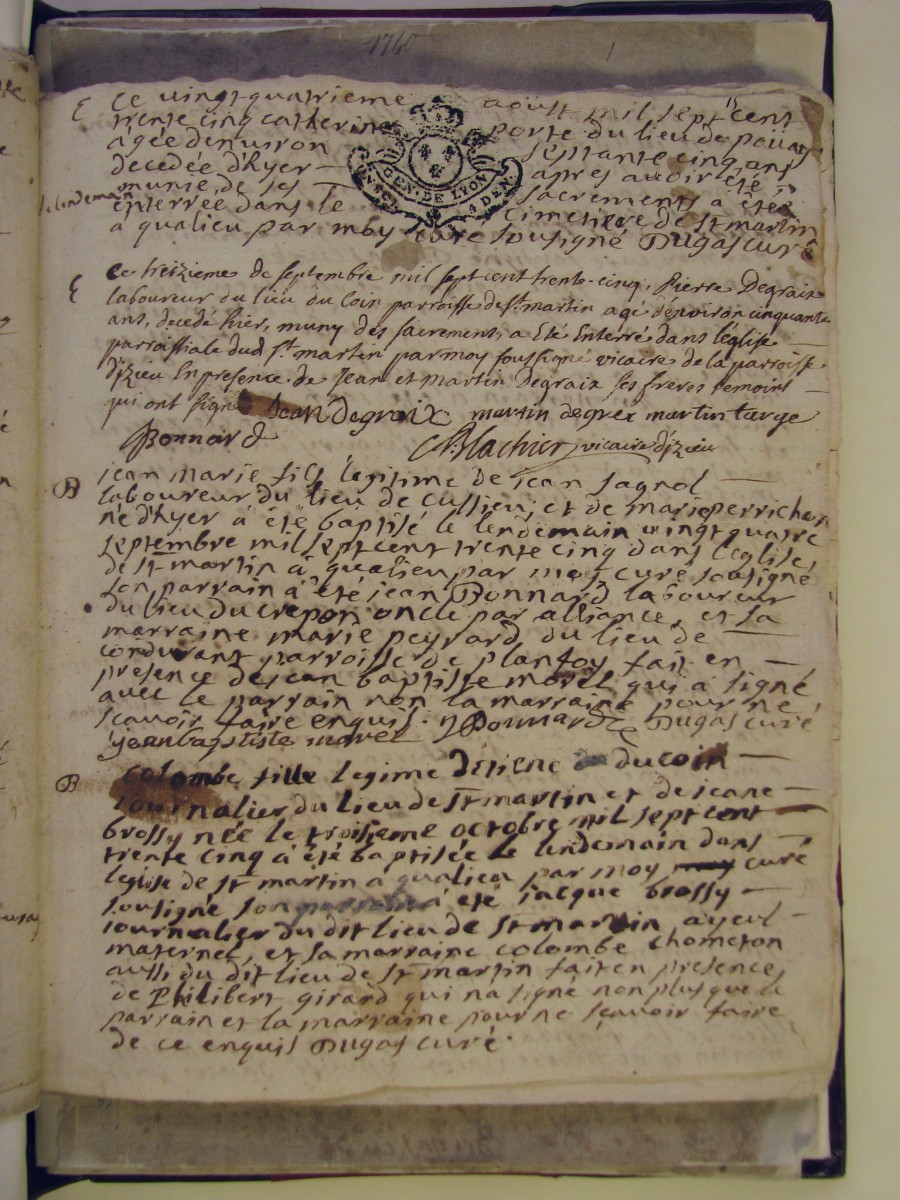 1740
1
E ce vingt quatrieme aoust mil sept cent
trente cinq catherine porte du lieu de
agée denviron septante cinq ans
decedée d'hyer apres avoir été
munie de ses sacrements a eté
le lendemain
enterrée dans le cimetiere de st martin
a qualieu par moy curé sousigné Dugas curé
GEN. DE LYON
4 DEN.
E Ce treizieme de septembre mil sept cent trente-cinq, Pierre Degraix
laboureur du lieu du Coin parroisse de st martin agé d'environ cinquante
ans, decedé hier, muny des sacrement, a Eté Enterré dans l'église
parroissiale dud st martin par moy soussigné vicaire de la parroisse
dizieu En presence de Jean et martin Degraix ses freres temoins
qui ont signé Jean Degraix martin degrex martin turge
Bonnard Blachier vicaire dizieu
B jean marie fils legitime de jean sagnol
laboureur du lieu de cullieu, et de marie perrichon
né d'hyer à été baptisé le lendemain vingt quatre
septembre mil sept cent trente cinq dans l'eglise
de st martin à qualieu par moy curé sousigné
son parrain à été jean Bonnard laboureur
du lieu du crepon oncle par alliance, et sa
marraine marie peyrard du lieu de
condurant parroisse de planfoy fait en
presence de jean baptiste morel qui à signé
avec le parrain non la marraine pour ne
sçavoir faire enquis. J Bonnard Dugas curé
jean baptiste morel
B colombe fille legime detiene du coin
journalier du lieu de st martin et de jeane
brossy née le troisieme octobre mil sept cent
trente cinq à été baptisée le lendemain dans
l'eglise de st martin a qualieu par moy curé
sousigné son parrain à été jacque brossy
journalier du dit lieu de st martin ayeul
maternel, et sa marraine colombe chometon
aussi du dit lieu de st martin fait en presence
de Philibert girard qui na signé non plus que le
parrain et la marraine pour ne sçavoir faire
de ce enquis Dugas curé